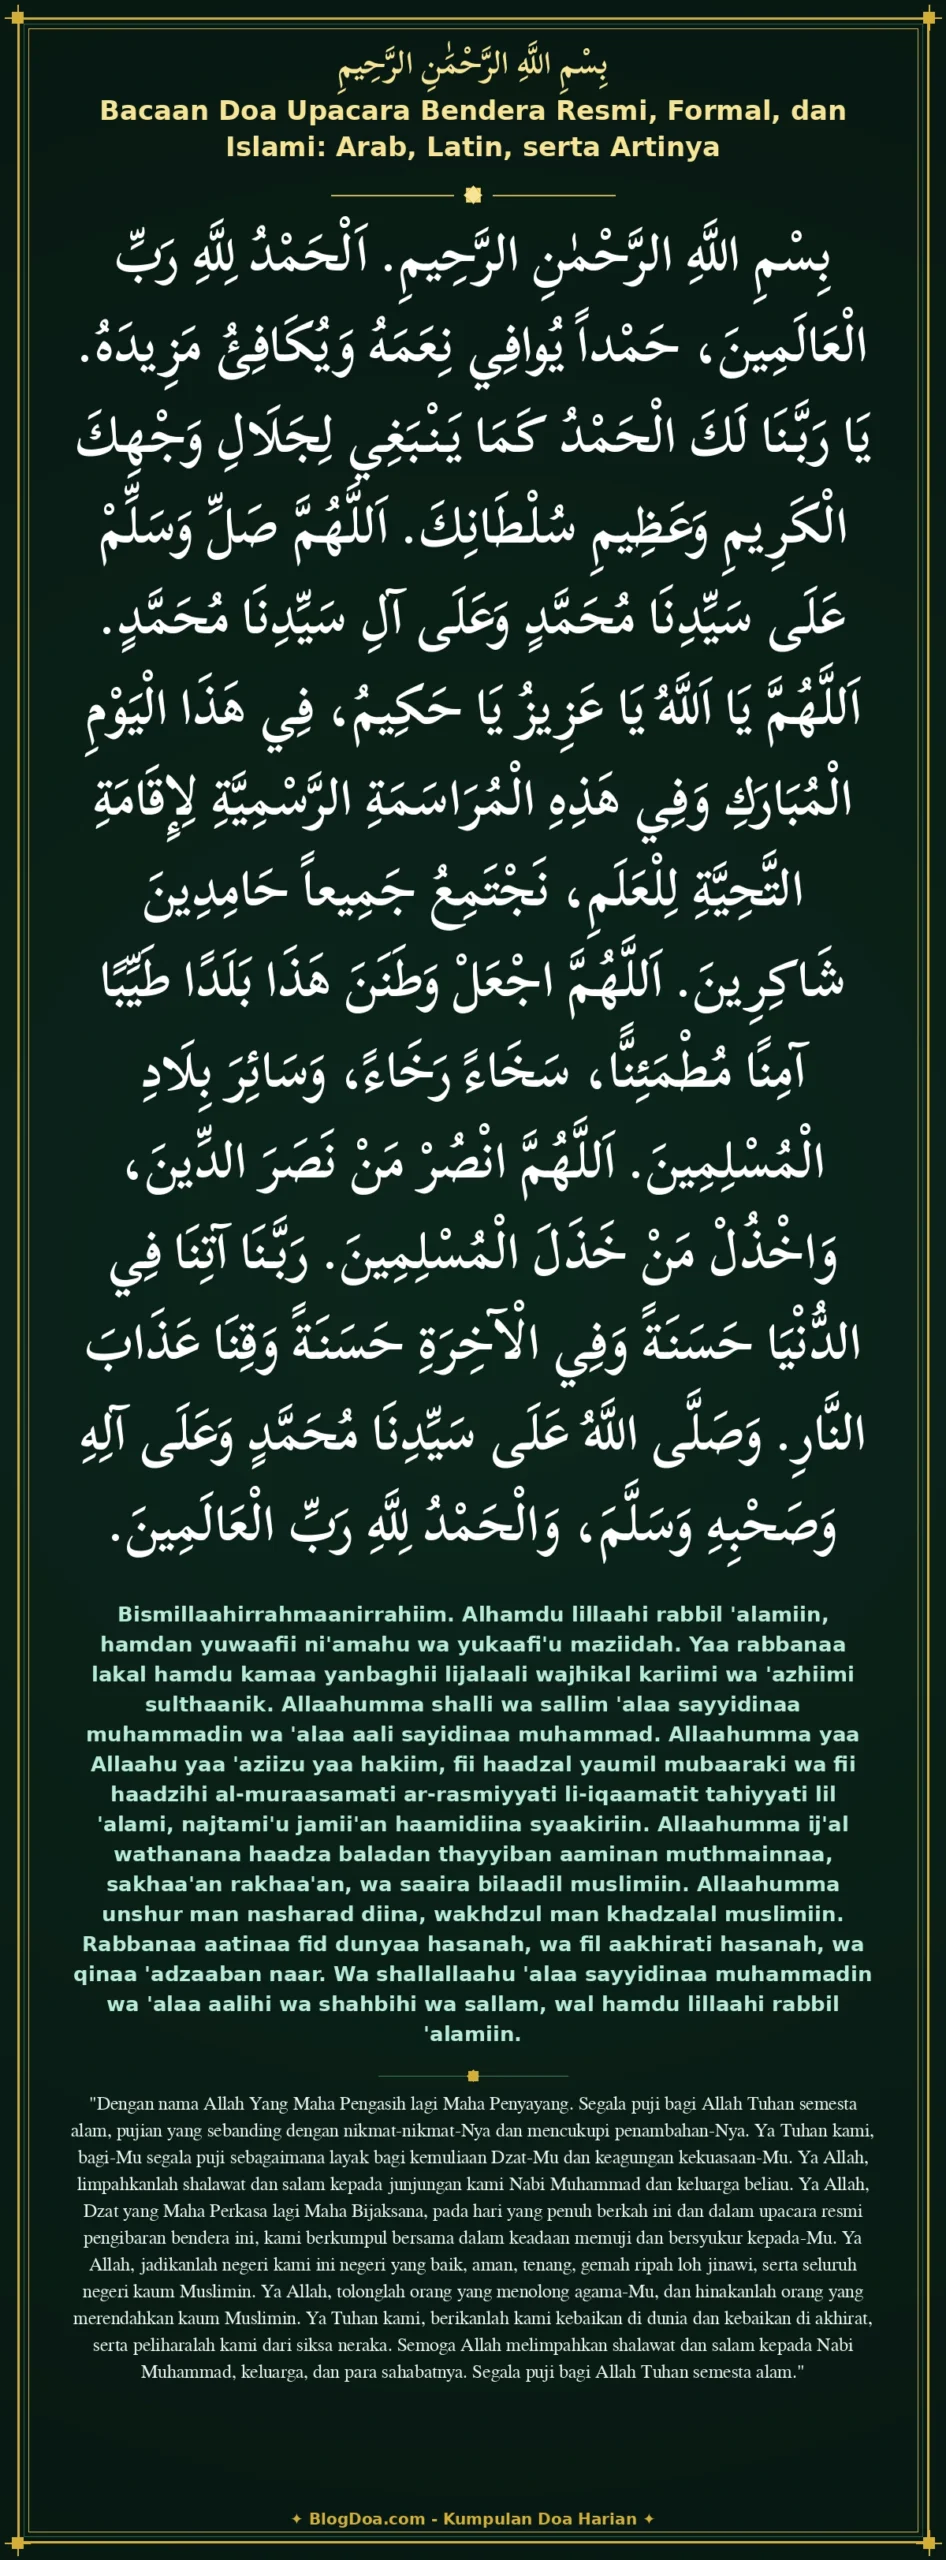 بِسْمِ اللَّهِ الرَّحْمَٰنِ الرَّحِيمِ
Bacaan Doa Upacara Bendera Resmi, Formal, dan
Islami: Arab, Latin, serta Artinya
بِسْمِ اللَّهِ الرَّحْمٰنِ الرَّحِيمِ. اَلْحَمْدُ لِلَّهِ رَبِّ
الْعَالَمِينَ، حَمْداً يُوافِي نِعَمَهُ وَيُكَافِئُ مَزِيدَهُ.
يَا رَبَّنَا لَكَ الْحَمْدُ كَمَا يَنْبَغِي لِجَلَالِ وَجْهِكَ
الْكَرِيمِ وَعَظِيمِ سُلْطَانِكَ. اَللَّهُمَّ صَلِّ وَسَلِّمْ
عَلَى سَيِّدِنَا مُحَمَّدٍ وَعَلَى آلِ سَيِّدِنَا مُحَمَّدٍ.
اَللَّهُمَّ يَا اَللَّهُ يَا عَزِيزُ يَا حَكِيمُ، فِي هَذَا الْيَوْمِ
الْمُبَارَكِ وَفِي هَذِهِ الْمُرَاسَمَةِ الرَّسْمِيَّةِ لِإِقَامَةِ
التَّحِيَّةِ لِلْعَلَمِ، نَجْتَمِعُ جَمِيعاً حَامِدِينَ
شَاكِرِينَ. اَللَّهُمَّ اجْعَلْ وَطَنَنَ هَذَا بَلَدًا طَيِّبًا
آمِنًا مُطْمَئِنًّا، سَخَاءً رَخَاءً، وَسَائِرَ بِلَادِ
الْمُسْلِمِينَ. اَللَّهُمَّ انْصُرْ مَنْ نَصَرَ الدِّينَ،
وَاخْذُلْ مَنْ خَذَلَ الْمُسْلِمِينَ. رَبَّنَا آتِنَا فِي
الدُّنْيَا حَسَنَةً وَفِي الْآخِرَةِ حَسَنَةً وَقِنَا عَذَابَ
النَّارِ. وَصَلَّى اللَّهُ عَلَى سَيِّدِنَا مُحَمَّدٍ وَعَلَى آلِهِ
وَصَحْبِهِ وَسَلَّمَ، وَالْحَمْدُ لِلَّهِ رَبِّ الْعَالَمِينَ.
Bismillaahirrahmaanirrahiim. Alhamdu lillaahi rabbil 'alamiin,
hamdan yuwaafii ni'amahu wa yukaafi'u maziidah. Yaa rabbanaa
lakal hamdu kamaa yanbaghii lijalaali wajhikal kariimi wa 'azhiimi
sulthaanik. Allaahumma shalli wa sallim 'alaa sayyidinaa
muhammadin wa 'alaa aali sayidinaa muhammad. Allaahumma yaa
Allaahu yaa 'aziizu yaa hakiim, fii haadzal yaumil mubaaraki wa fii
haadzihi al-muraasamati ar-rasmiyyati li-iqaamatit tahiyyati lil
'alami, najtami'u jamii'an haamidiina syaakiriin. Allaahumma ij'al
wathanana haadza baladan thayyiban aaminan muthmainnaa,
sakhaa'an rakhaa'an, wa saaira bilaadil muslimiin. Allaahumma
unshur man nasharad diina, wakhdzul man khadzalal muslimiin.
Rabbanaa aatinaa fid dunyaa hasanah, wa fil aakhirati hasanah, wa
qinaa 'adzaaban naar. Wa shallallaahu 'alaa sayyidinaa muhammadin
wa 'alaa aalihi wa shahbihi wa sallam, wal hamdu lillaahi rabbil
'alamiin.
"Dengan nama Allah Yang Maha Pengasih lagi Maha Penyayang. Segala puji bagi Allah Tuhan semesta
alam, pujian yang sebanding dengan nikmat-nikmat-Nya dan mencukupi penambahan-Nya. Ya Tuhan kami,
bagi-Mu segala puji sebagaimana layak bagi kemuliaan Dzat-Mu dan keagungan kekuasaan-Mu. Ya Allah,
limpahkanlah shalawat dan salam kepada junjungan kami Nabi Muhammad dan keluarga beliau. Ya Allah,
Dzat yang Maha Perkasa lagi Maha Bijaksana, pada hari yang penuh berkah ini dan dalam upacara resmi
pengibaran bendera ini, kami berkumpul bersama dalam keadaan memuji dan bersyukur kepada-Mu. Ya
Allah, jadikanlah negeri kami ini negeri yang baik, aman, tenang, gemah ripah loh jinawi, serta seluruh
negeri kaum Muslimin. Ya Allah, tolonglah orang yang menolong agama-Mu, dan hinakanlah orang yang
merendahkan kaum Muslimin. Ya Tuhan kami, berikanlah kami kebaikan di dunia dan kebaikan di akhirat,
serta peliharalah kami dari siksa neraka. Semoga Allah melimpahkan shalawat dan salam kepada Nabi
Muhammad, keluarga, dan para sahabatnya. Segala puji bagi Allah Tuhan semesta alam."
✦ BlogDoa.com - Kumpulan Doa Harian ✦